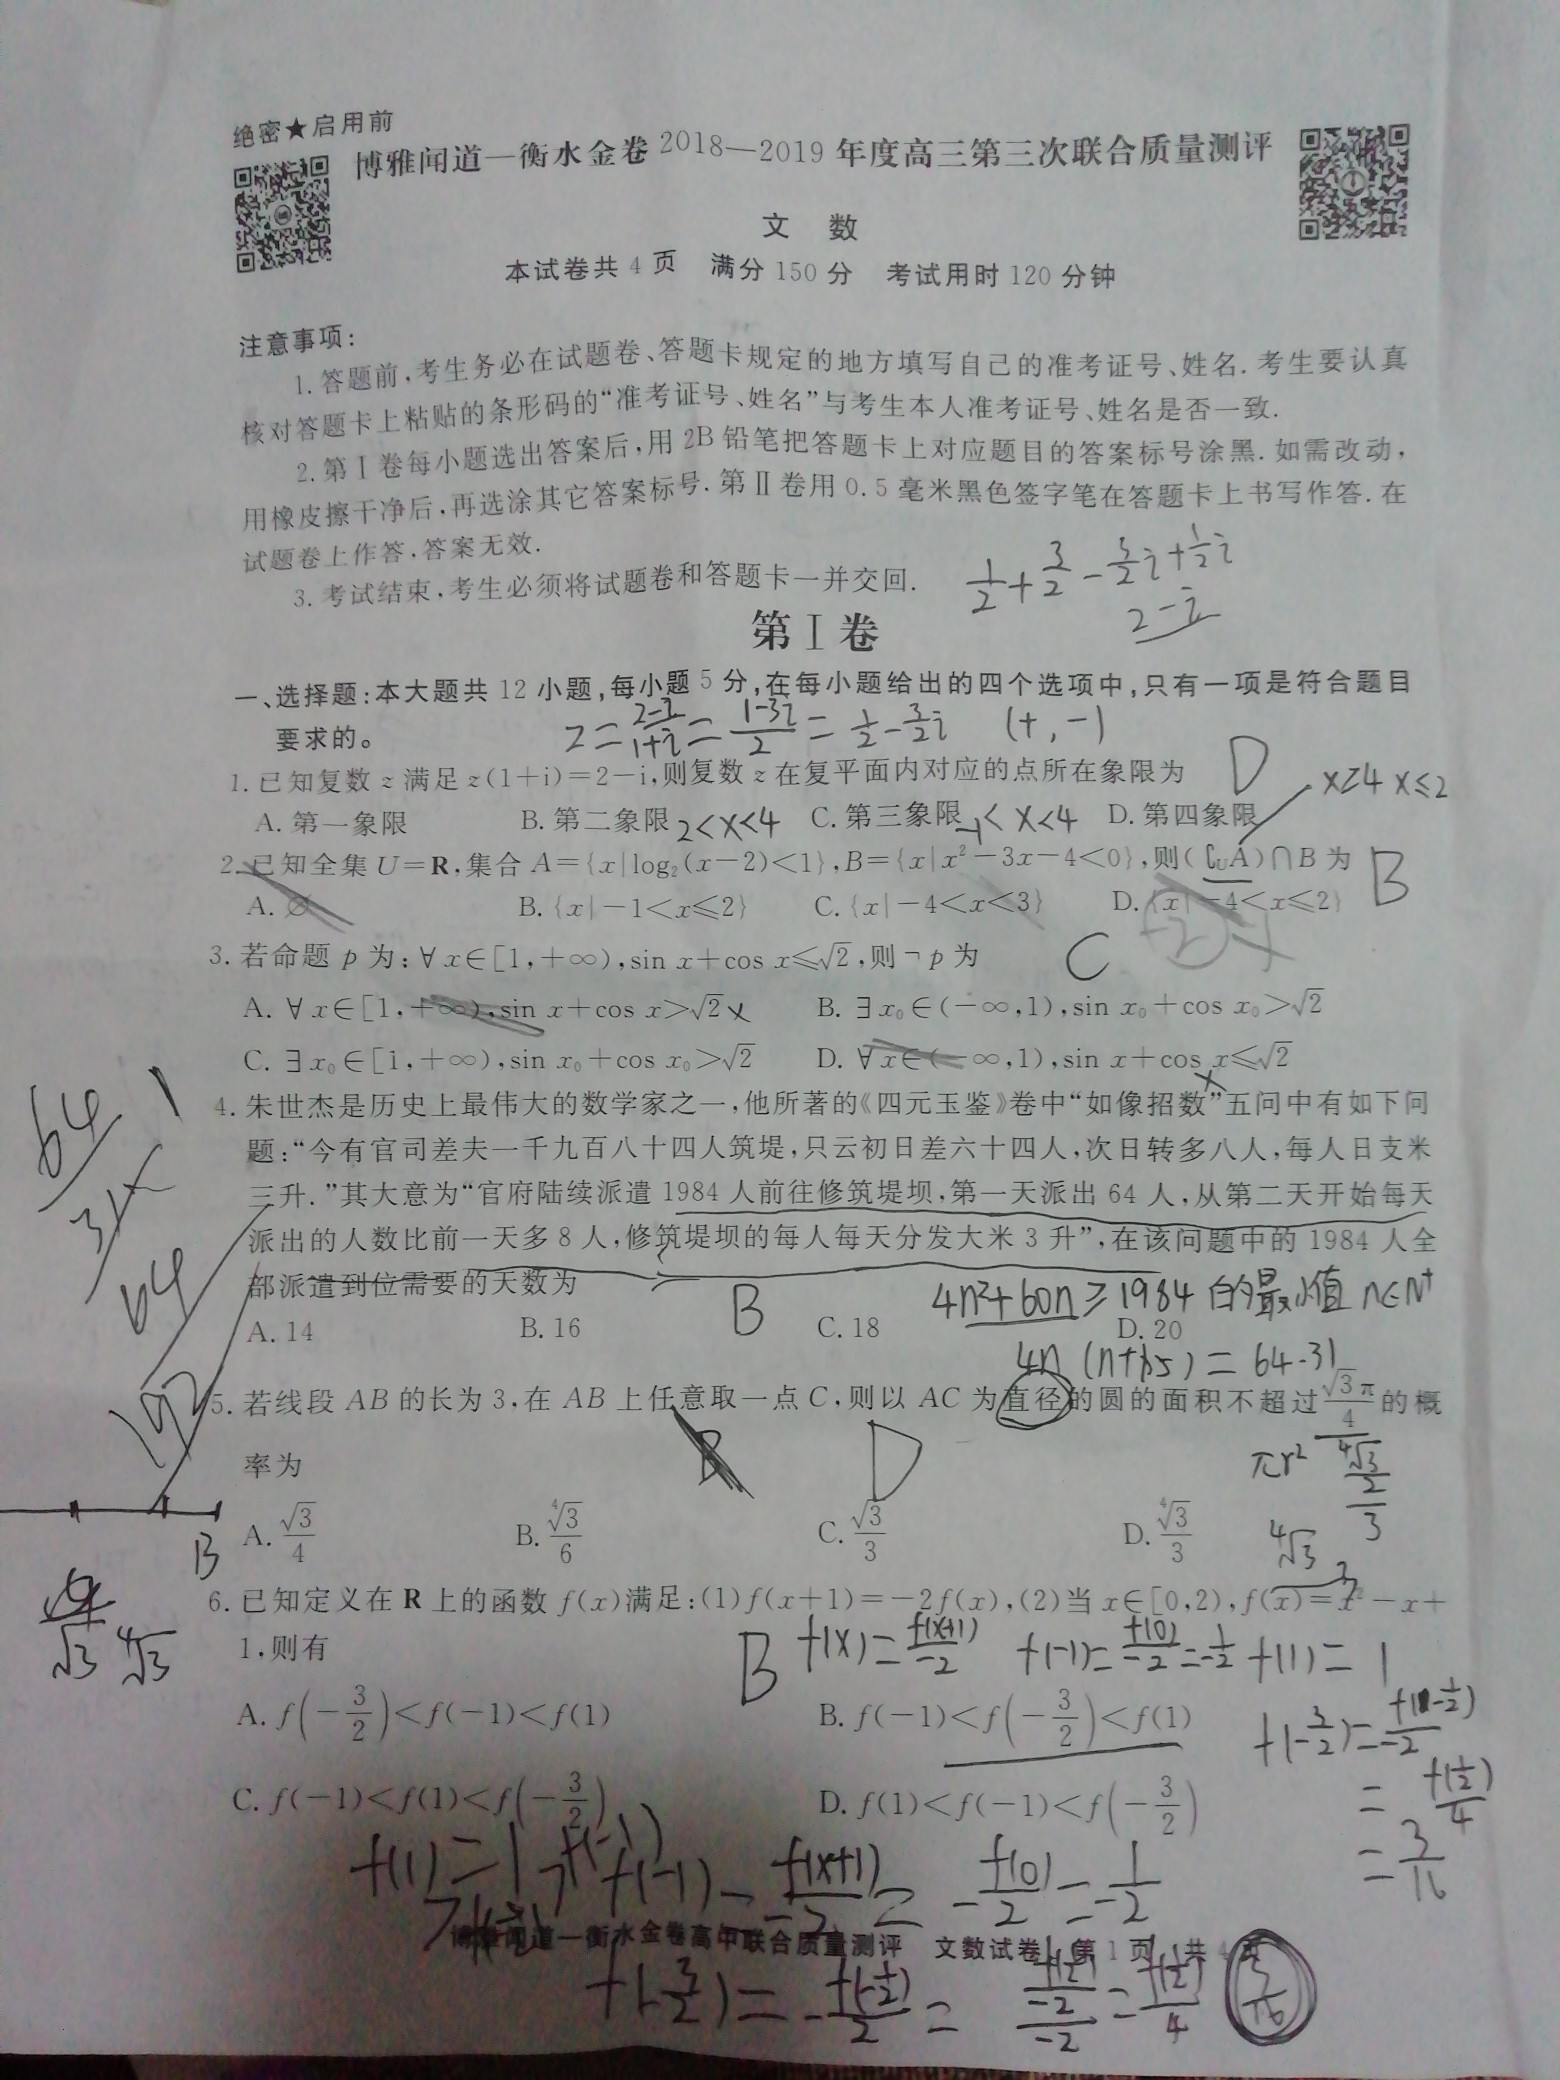 绝密★启用前
博雅闻道—衡水金卷2018—2019年度高三第三次联合质量测评
文 数
本试卷共4页 满分150分 考试用时120分钟
注意事项:
1.答题前,考生务必在试题卷、答题卡规定的地方填写自己的准考证号、姓名.考生要认真
核对答题卡上粘贴的条形码的“准考证号、姓名”与考生本人准考证号、姓名是否一致.
2.第Ⅰ卷每小题选出答案后,用2B铅笔把答题卡上对应题目的答案标号涂黑.如需改动,
用橡皮擦干净后,再选涂其它答案标号.第Ⅱ卷用0.5毫米黑色签字笔在答题卡上书写作答.在
试题卷上作答,答案无效.
3.考试结束,考生必须将试题卷和答题卡一并交回.
1/2+3/2-3/2i+1/2i
2-i
第Ⅰ卷
一、选择题:本大题共12小题,每小题5分,在每小题给出的四个选项中,只有一项是符合题目
要求的。
z=(2-i)/(1+i)=(1-3i)/2=1/2-3/2i (+,-)
1.已知复数z满足z(1+i)=2-i,则复数z在复平面内对应的点所在象限为 D
x≥4 x≤2
A.第一象限 B.第二象限 C.第三象限 D.第四象限
2<x<4 -1<x<4
2.已知全集U=R,集合A={x|log₂(x-2)<1},B={x|x²-3x-4<0},则(∁UA)∩B为 B
A.∅ B.{x|-1<x≤2} C.{x|-4<x<3} D.{x|-4<x≤2}
3.若命题p为:∀x∈[1,+∞),sin x+cos x≤√2,则¬p为 C
A.∀x∈[1,+∞),sin x+cos x>√2 x B.∃x₀∈(-∞,1),sin x₀+cos x₀>√2
C.∃x₀∈[1,+∞),sin x₀+cos x₀>√2 D.∀x∈(-∞,1),sin x+cos x≤√2
x
4.朱世杰是历史上最伟大的数学家之一,他所著的《四元玉鉴》卷中“如像招数”五问中有如下问
题:“今有官司差夫一千九百八十四人筑堤,只云初日差六十四人,次日转多八人,每人日支米
三升.”其大意为“官府陆续派遣1984人前往修筑堤坝,第一天派出64人,从第二天开始每天
派出的人数比前一天多8人,修筑堤坝的每人每天分发大米3升”,在该问题中的1984人全
部派遣到位需要的天数为
B 4n²+60n≥1984的最小值 n∈N⁺
A.14 B.16 C.18 D.20
4n(n+15)=64·31
64
31
64
192
5.若线段AB的长为3,在AB上任意取一点C,则以AC为直径的圆的面积不超过√3π/4的概
率为
B D
πr²
A.√3/4 B.⁴√3/6 C.√3/3 D.⁴√3/3
B
⁴√3
6.已知定义在R上的函数f(x)满足:(1)f(x+1)=-2f(x),(2)当x∈[0,2),f(x)=x²-x+
1,则有
√3 ⁴√3
B f(x)=f(x+1)/-2 f(-1)=f(0)/-2=-1/2 f(1)=1
A.f(-3/2)<f(-1)<f(1) B.f(-1)<f(-3/2)<f(1)
f(-3/2)=f(-1/2)/-2
=f(1/2)/4
=3/16
C.f(-1)<f(1)<f(-3/2) D.f(1)<f(-1)<f(-3/2)
f(1)=1 f(-1)=f(x+1)/-2 -f(0)/2=1/-2
博雅闻道—衡水金卷高中联合质量测评 文数试卷 第1页 共4页
f(-3/2)=-f(-1/2)/2=f(1/2)/-2/-2=f(1/2)/4 3/16